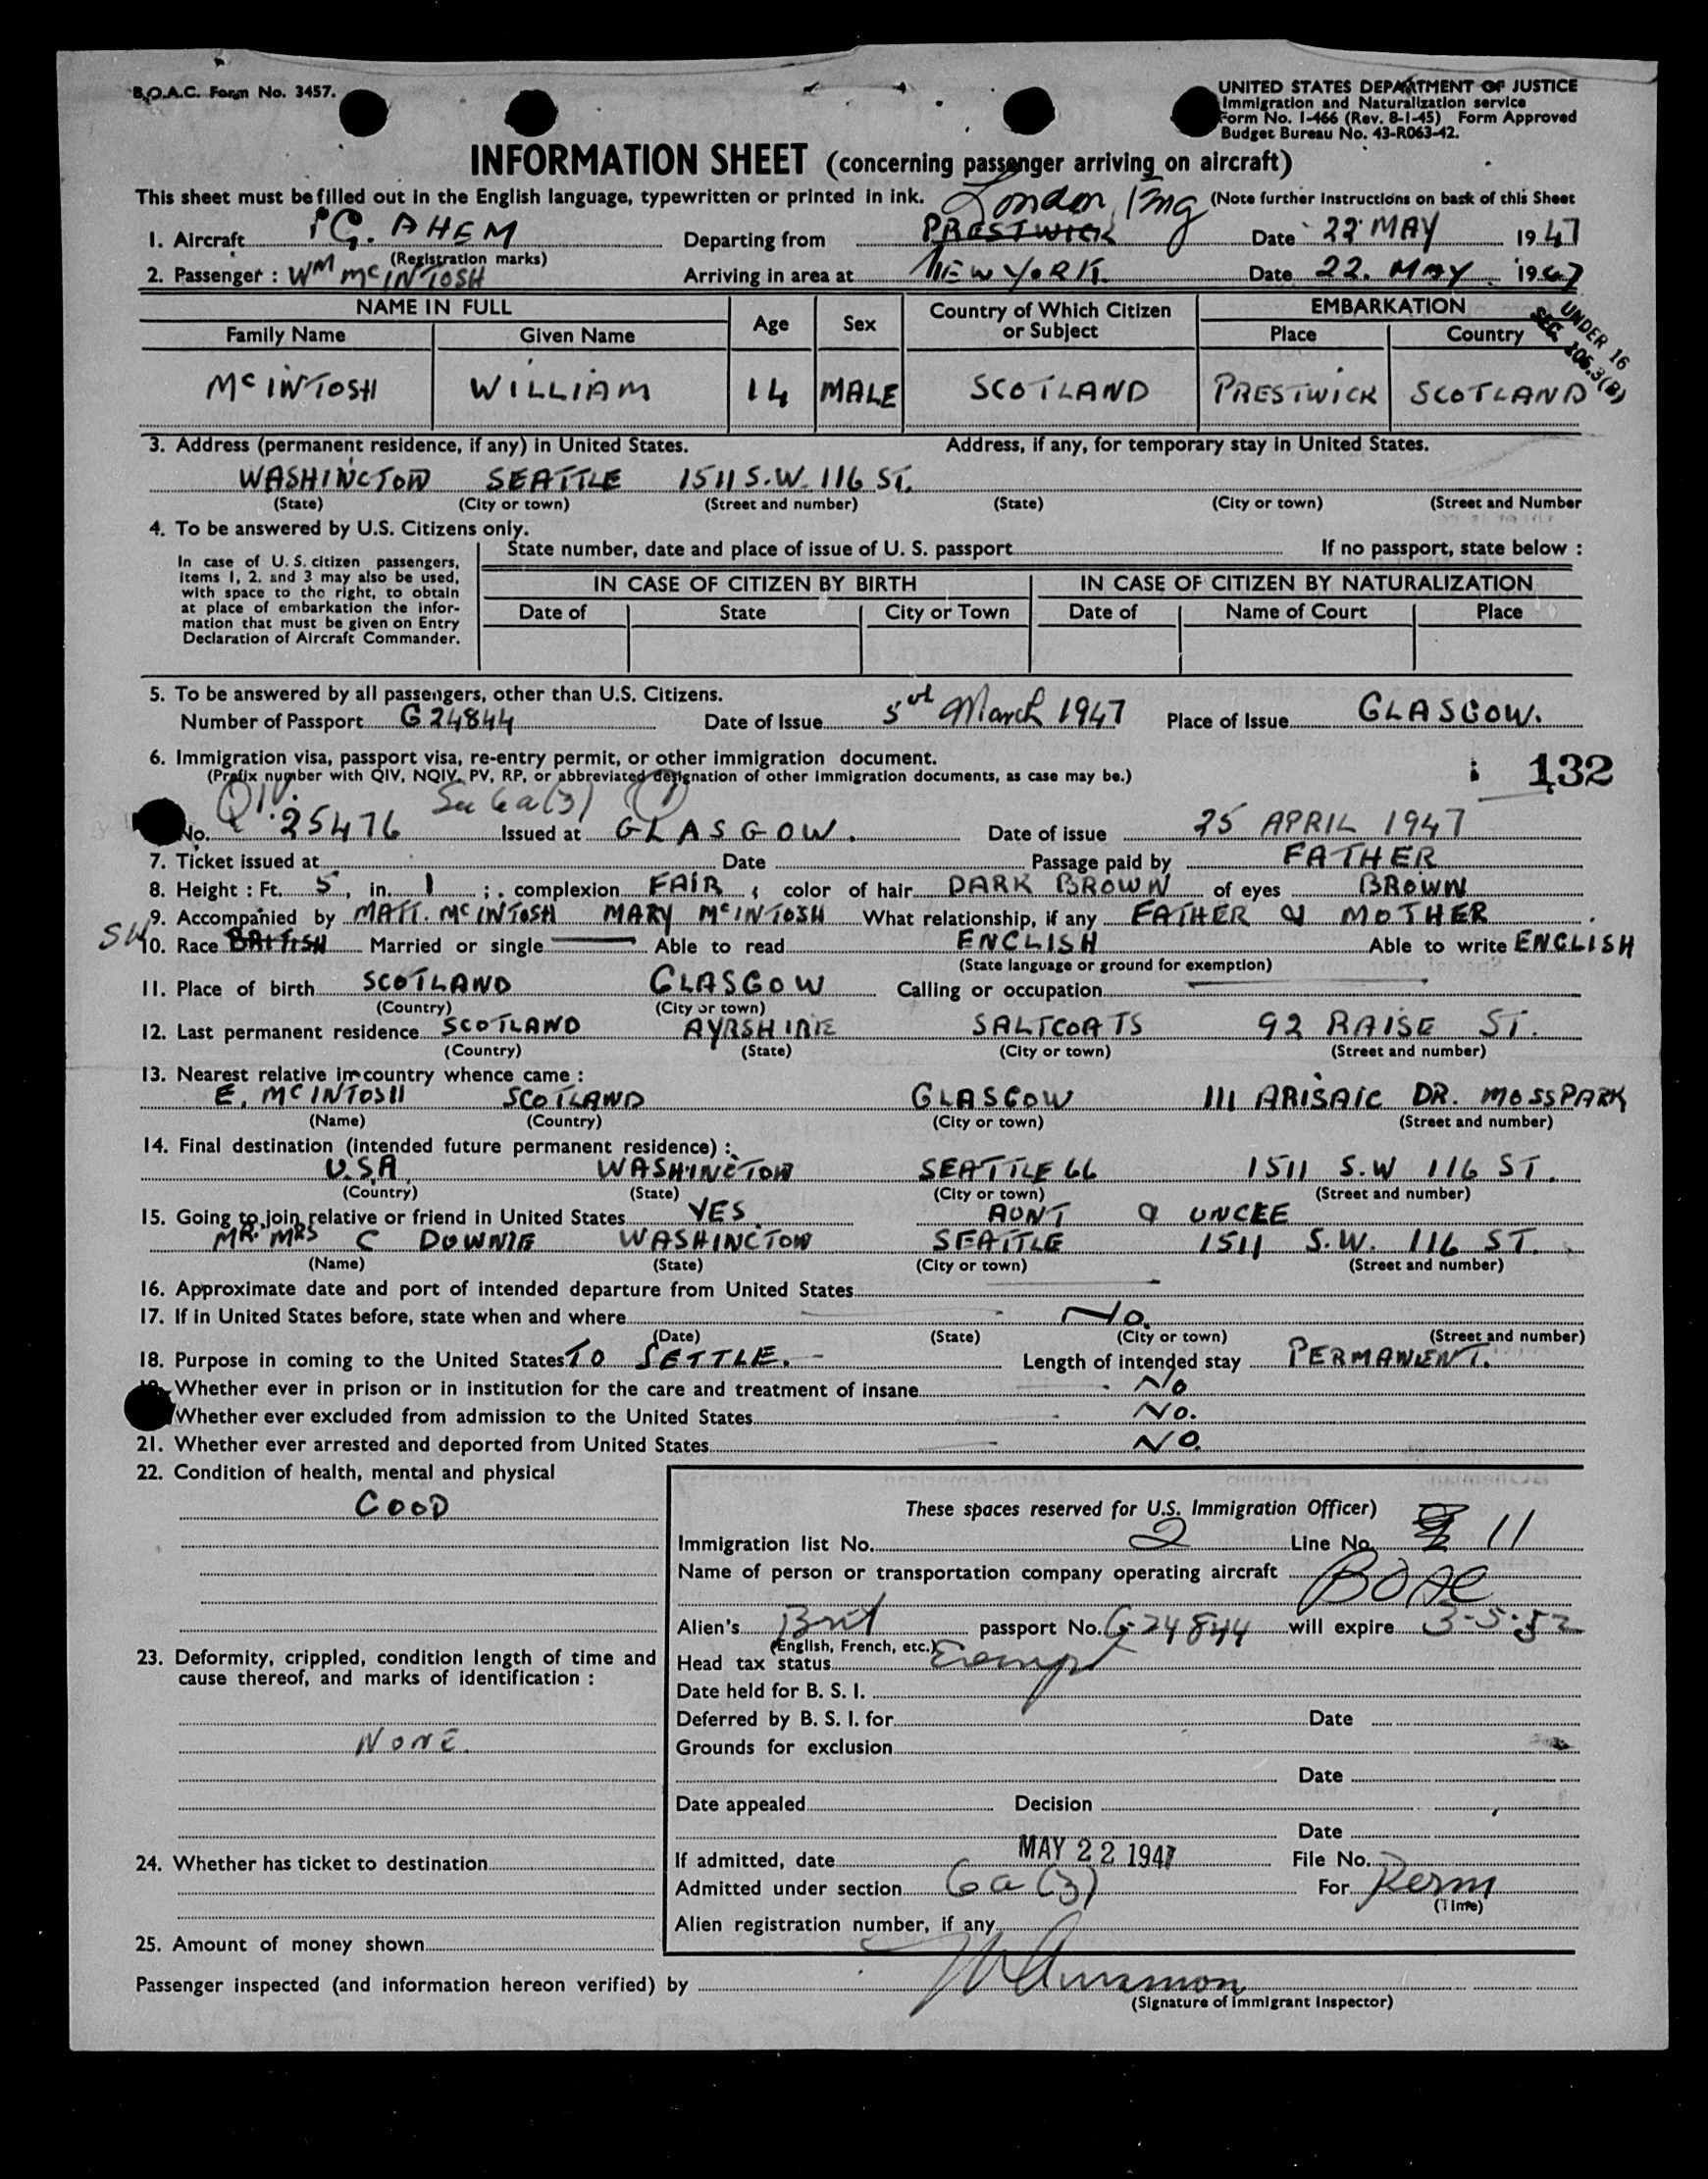 B.O.A.C. Form No. 3457.
UNITED STATES DEPARTMENT OF JUSTICE
Immigration and Naturalization service
Form No. I-466 (Rev. 8-1-45) Form Approved
Budget Bureau No. 43-R063-42.
INFORMATION SHEET (concerning passenger arriving on aircraft)
This sheet must be filled out in the English language, typewritten or printed in ink. (Note further instructions on back of this Sheet
London Eng
1. Aircraft G. AHEM Departing from PRESTWICK Date 22 MAY 1947
(Registration marks)
2. Passenger : WM McINTOSH Arriving in area at NEW YORK. Date 22. MAY 1947
NAME IN FULL Age Sex Country of Which Citizen or Subject EMBARKATION
Family Name Given Name Place Country
UNDER 16
SEC 106.3(B)
McINTOSH WILLIAM 14 MALE SCOTLAND PRESTWICK SCOTLAND
3. Address (permanent residence, if any) in United States. Address, if any, for temporary stay in United States.
WASHINGTON SEATTLE 1511 S.W. 116 ST.
(State) (City or town) (Street and number) (State) (City or town) (Street and Number
4. To be answered by U.S. Citizens only.
In case of U. S. citizen passengers, items 1, 2, and 3 may also be used, with space to the right, to obtain at place of embarkation the information that must be given on Entry Declaration of Aircraft Commander.
State number, date and place of issue of U. S. passport If no passport, state below :
IN CASE OF CITIZEN BY BIRTH IN CASE OF CITIZEN BY NATURALIZATION
Date of State City or Town Date of Name of Court Place
5. To be answered by all passengers, other than U.S. Citizens.
Number of Passport G 24844 Date of Issue 5th March 1947 Place of Issue GLASGOW.
6. Immigration visa, passport visa, re-entry permit, or other immigration document.
(Prefix number with QIV, NQIV, PV, RP, or abbreviated designation of other immigration documents, as case may be.)
132
QIV. Sec 6a(3) (1)
No. 25476 Issued at GLASGOW. Date of issue 25 APRIL 1947
7. Ticket issued at Date Passage paid by FATHER
8. Height : Ft. 5, in. 1 ; complexion FAIR ; color of hair DARK BROWN of eyes BROWN
9. Accompanied by MATT. McINTOSH MARY McINTOSH What relationship, if any FATHER & MOTHER
10. Race BRITISH Married or single Able to read ENGLISH Able to write ENGLISH
(State language or ground for exemption)
11. Place of birth SCOTLAND GLASGOW Calling or occupation
(Country) (City or town)
12. Last permanent residence SCOTLAND AYRSHIRE SALTCOATS 92 RAISE ST.
(Country) (State) (City or town) (Street and number)
13. Nearest relative in country whence came :
E. McINTOSH SCOTLAND GLASGOW 111 ARISAIG DR. MOSSPARK
(Name) (Country) (City or town) (Street and number)
14. Final destination (intended future permanent residence) :
U.S.A WASHINGTON SEATTLE 66 1511 S.W 116 ST.
(Country) (State) (City or town) (Street and number)
15. Going to join relative or friend in United States YES. AUNT & UNCLE
MR. MRS C DOWNIE WASHINGTON SEATTLE 1511 S.W. 116 ST.
(Name) (State) (City or town) (Street and number)
16. Approximate date and port of intended departure from United States
17. If in United States before, state when and where No.
(Date) (State) (City or town) (Street and number)
18. Purpose in coming to the United States TO SETTLE. Length of intended stay PERMANENT.
Whether ever in prison or in institution for the care and treatment of insane No
Whether ever excluded from admission to the United States No.
21. Whether ever arrested and deported from United States NO.
22. Condition of health, mental and physical
GOOD
23. Deformity, crippled, condition length of time and cause thereof, and marks of identification :
NONE.
24. Whether has ticket to destination
25. Amount of money shown
These spaces reserved for U.S. Immigration Officer)
Immigration list No. 2 Line No. 11
Name of person or transportation company operating aircraft BOAC
Alien's Brit passport No. G-24844 will expire 3-5-52
(English, French, etc.)
Head tax status Exempt
Date held for B. S. I.
Deferred by B. S. I. for Date
Grounds for exclusion
Date
Date appealed Decision
Date
If admitted, date MAY 22 1947 File No.
Admitted under section 6a(3) For Perm
(Time)
Alien registration number, if any
Passenger inspected (and information hereon verified) by
(Signature of Immigrant Inspector)